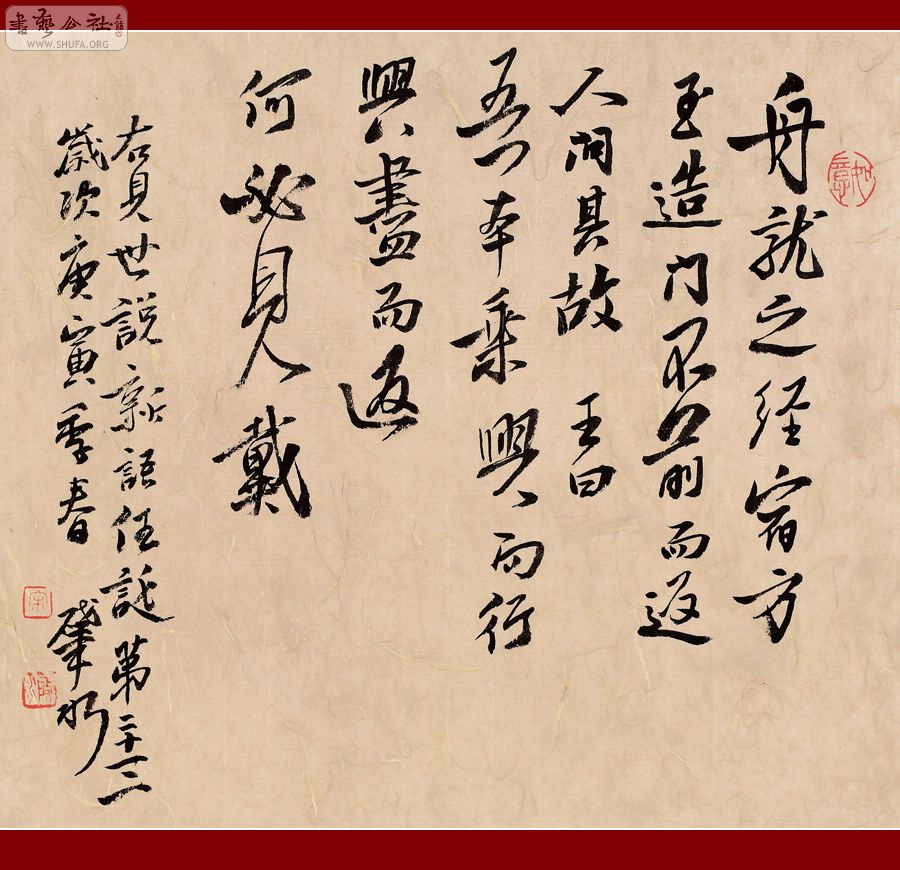 舟就之经宿方
至造门不前而返
人问其故 王曰
吾本乘興而行
興盡而返
何必見戴
右見世説新語任誕第二十三
歲次庚寅季春 肇明
如意
書藝公社
WWW.SHUFA.ORG